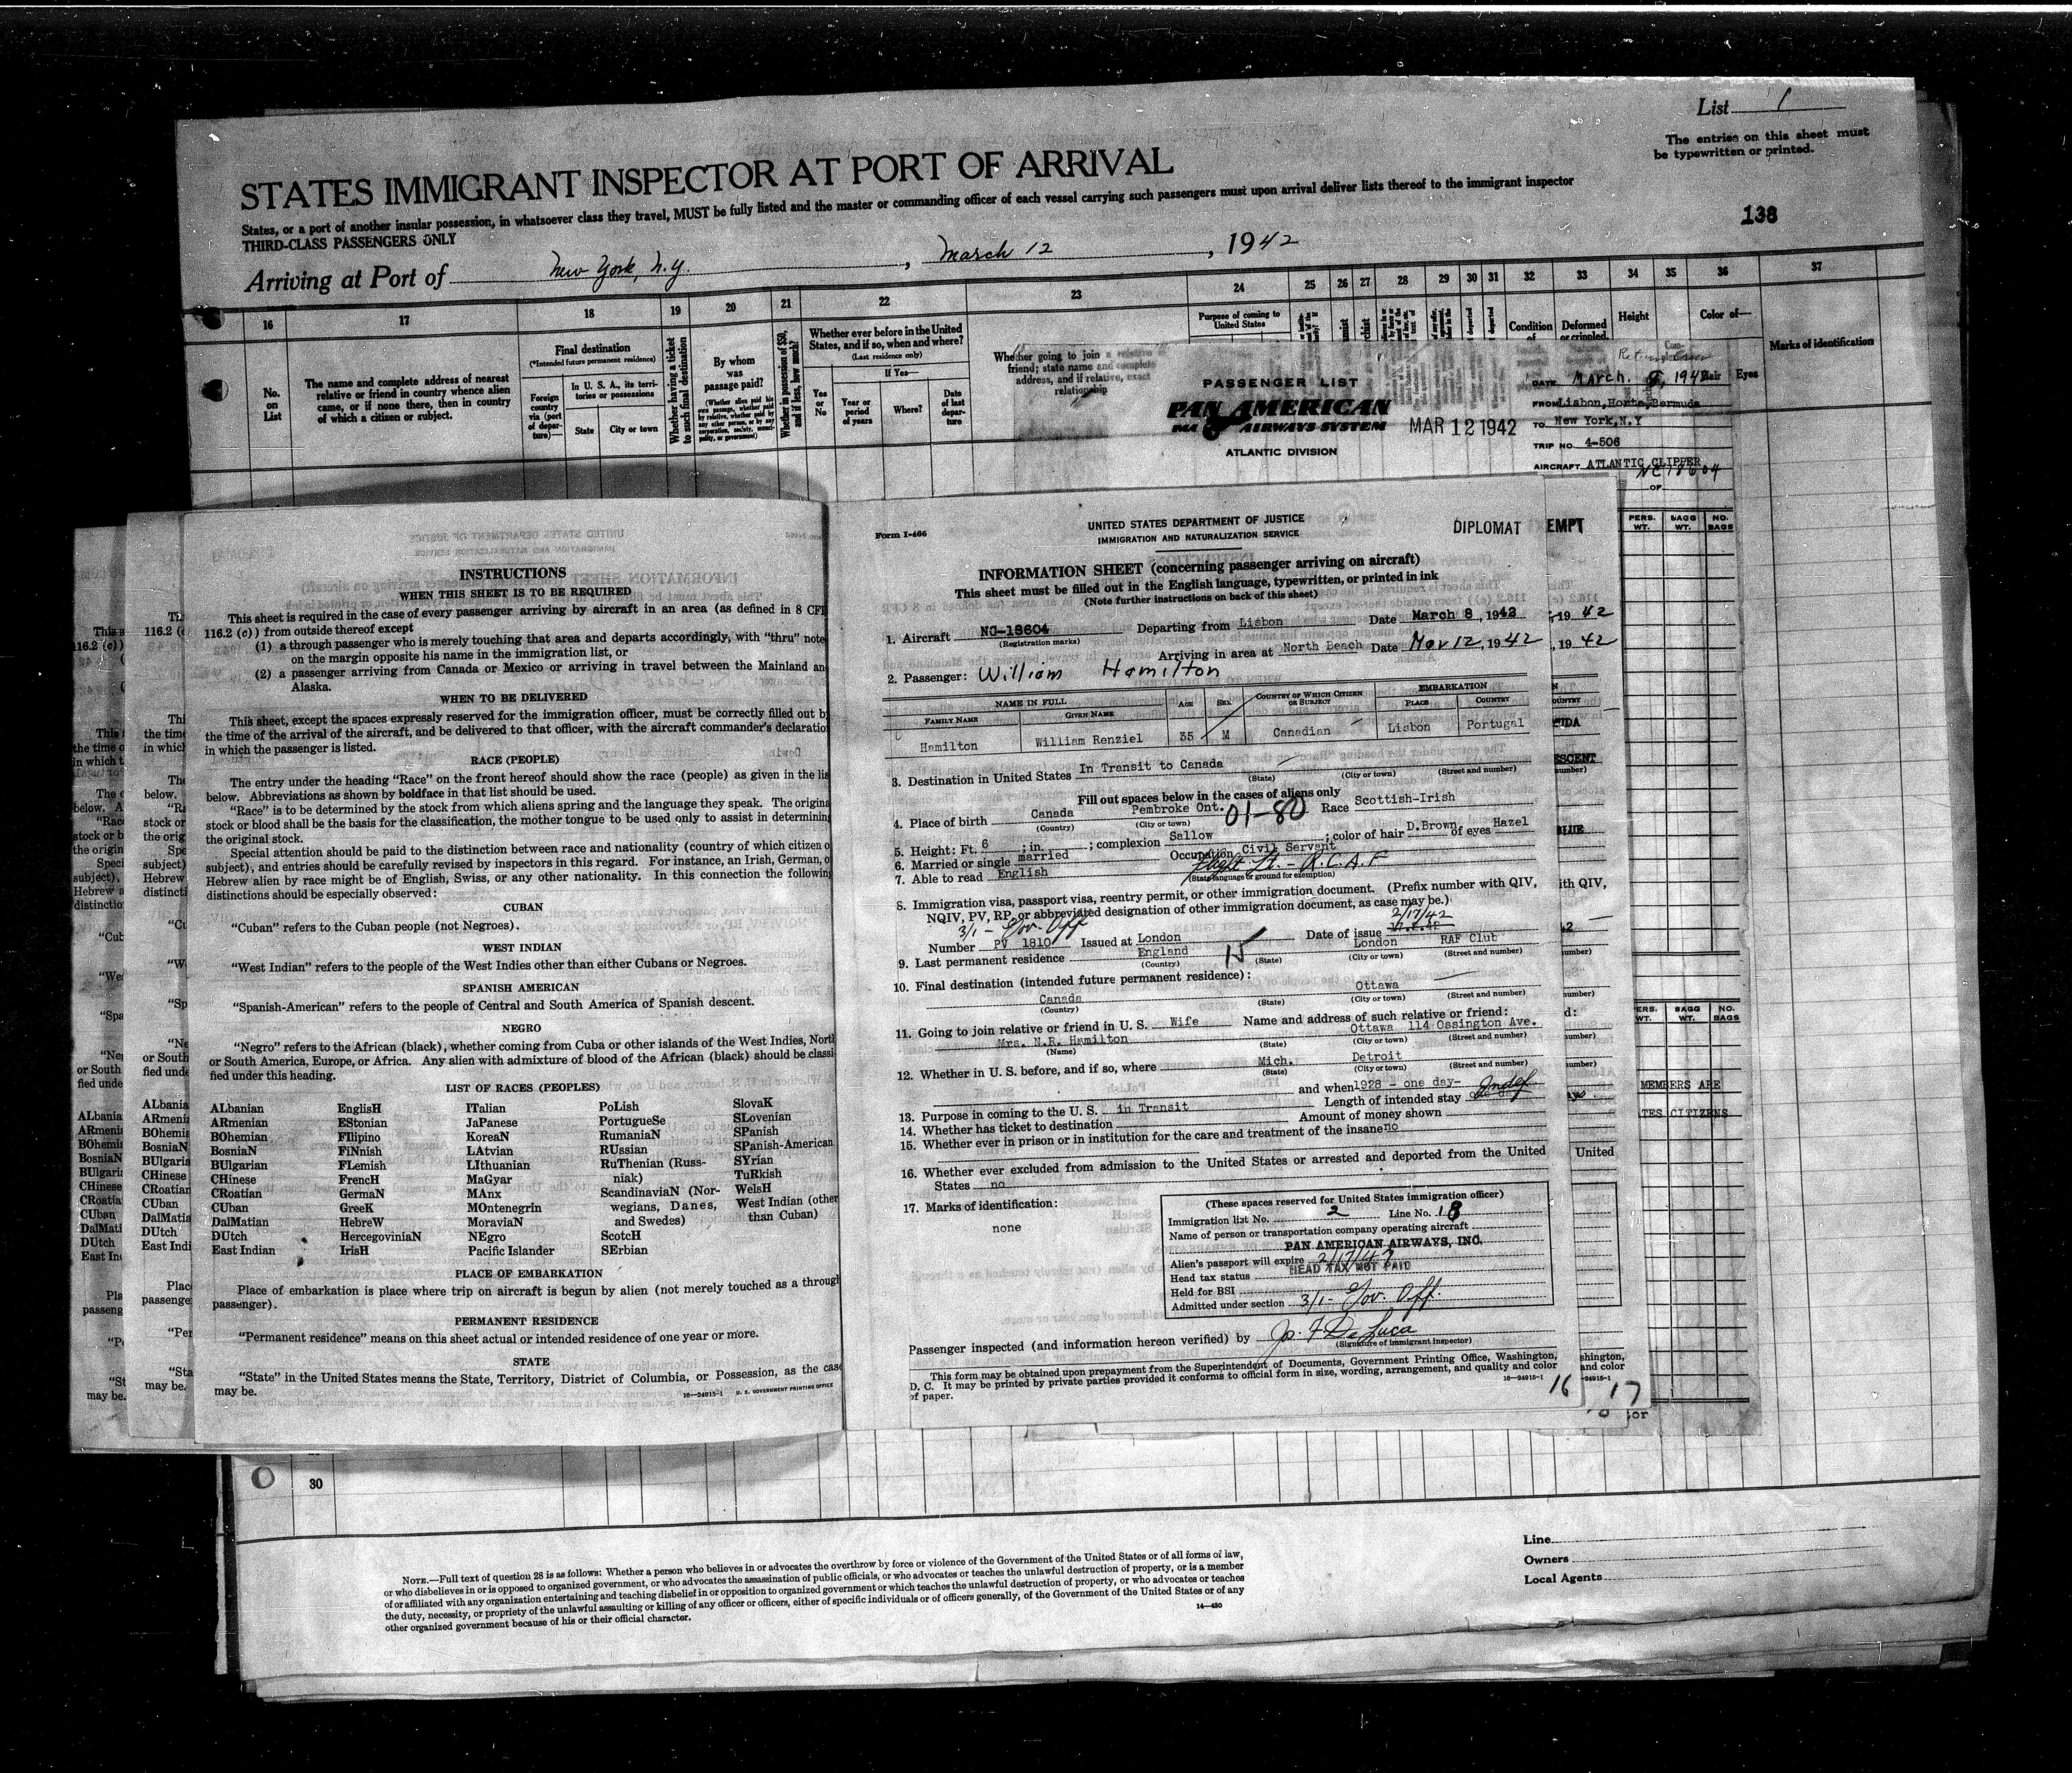 List 1
The entries on this sheet must
be typewritten or printed.
STATES IMMIGRANT INSPECTOR AT PORT OF ARRIVAL
States, or a port of another insular possession, in whatsoever class they travel, MUST be fully listed and the master or commanding officer of each vessel carrying such passengers must upon arrival deliver lists thereof to the immigrant inspector
THIRD-CLASS PASSENGERS ONLY
138
Arriving at Port of New York, N.Y. , March 12 , 1942
16 17 18 19 20 21 22 23 24 25 26 27 28 29 30 31 32 33 34 35 36 37
No.
on
List
The name and complete address of nearest
relative or friend in country whence alien
came, or if none there, then in country
of which a citizen or subject.
Final destination
(*Intended future permanent residence)
Foreign
country
via (port
of depar-
ture)—
In U. S. A., its terri-
tories or possessions
State City or town
Whether having a ticket
to such final destination
By whom
was
passage paid?
Whether in possession of $50,
and if less, how much?
Whether ever before in the United
States, and if so, when and where?
(Last residence only)
If Yes—
Yes
or
No
Year or
period
of years
Where?
Date
of last
depar-
ture
Whether going to join a relative or
friend; state name and complete
address, and if relative, exact
relationship
Purpose of coming to
United States
Condition
of
Deformed
or crippled.
Height
Color of—
Hair Eyes
Marks of identification
PASSENGER LIST
PAN AMERICAN
PAA AIRWAYS SYSTEM
ATLANTIC DIVISION
MAR 12 1942
DATE March.
FROM Lisbon, Horta, Bermuda
TO New York, N.Y
TRIP NO. 4-506
AIRCRAFT ATLANTIC CLIPPER
NC18604
OF
PERS.
WT.
BAGG
WT.
NO.
BAGS
INSTRUCTIONS
WHEN THIS SHEET IS TO BE REQUIRED
This sheet is required in the case of every passenger arriving by aircraft in an area (as defined in 8 CFR
116.2 (c)) from outside thereof except
(1) a through passenger who is merely touching that area and departs accordingly, with “thru” note
on the margin opposite his name in the immigration list, or
(2) a passenger arriving from Canada or Mexico or arriving in travel between the Mainland an
Alaska.
WHEN TO BE DELIVERED
This sheet, except the spaces expressly reserved for the immigration officer, must be correctly filled out b
the time of the arrival of the aircraft, and be delivered to that officer, with the aircraft commander’s declaratio
in which the passenger is listed.
RACE (PEOPLE)
The entry under the heading “Race” on the front hereof should show the race (people) as given in the lis
below. Abbreviations as shown by boldface in that list should be used.
“Race” is to be determined by the stock from which aliens spring and the language they speak. The origina
stock or blood shall be the basis for the classification, the mother tongue to be used only to assist in determinin
the original stock.
Special attention should be paid to the distinction between race and nationality (country of which citizen o
subject), and entries should be carefully revised by inspectors in this regard. For instance, an Irish, German, o
Hebrew alien by race might be of English, Swiss, or any other nationality. In this connection the followin
distinctions should be especially observed:
CUBAN
“Cuban” refers to the Cuban people (not Negroes).
WEST INDIAN
“West Indian” refers to the people of the West Indies other than either Cubans or Negroes.
SPANISH AMERICAN
“Spanish-American” refers to the people of Central and South America of Spanish descent.
NEGRO
“Negro” refers to the African (black), whether coming from Cuba or other islands of the West Indies, Nort
or South America, Europe, or Africa. Any alien with admixture of blood of the African (black) should be classi
fied under this heading.
LIST OF RACES (PEOPLES)
ALbanian
ARmenian
BOhemian
BosniaN
BUlgarian
CHinese
CRoatian
CUban
DalMatian
DUtch
East Indian
EnglisH
EStonian
FIlipino
FiNnish
FLemish
FrencH
GermaN
GreeK
HebreW
HercegoviniaN
IrisH
ITalian
JaPanese
KoreaN
LAtvian
LIthuanian
MaGyar
MAnx
MOntenegrin
MoraviaN
NEgro
Pacific Islander
PoLish
PortugueSe
RumaniaN
RUssian
RuThenian (Russ-
niak)
ScandinaviaN (Nor-
wegians, Danes,
and Swedes)
ScotcH
SErbian
SlovaK
SLovenian
SPanish
SPanish-American
SYrian
TuRkish
WelsH
West Indian (other
than Cuban)
PLACE OF EMBARKATION
Place of embarkation is place where trip on aircraft is begun by alien (not merely touched as a throug
passenger).
PERMANENT RESIDENCE
“Permanent residence” means on this sheet actual or intended residence of one year or more.
STATE
“State” in the United States means the State, Territory, District of Columbia, or Possession, as the case
may be.
16—24915-1 U. S. GOVERNMENT PRINTING OFFICE
Form I-466
UNITED STATES DEPARTMENT OF JUSTICE
IMMIGRATION AND NATURALIZATION SERVICE
DIPLOMAT
EMPT
INFORMATION SHEET (concerning passenger arriving on aircraft)
This sheet must be filled out in the English language, typewritten, or printed in ink
(Note further instructions on back of this sheet)
1. Aircraft NC-18604 Departing from Lisbon Date March 8, 1942
(Registration marks) Arriving in area at North Beach Date Mar 12, 1942
2. Passenger: William Hamilton
NAME IN FULL AGE SEX COUNTRY OF WHICH CITIZEN OR SUBJECT EMBARKATION
FAMILY NAME GIVEN NAME PLACE COUNTRY
Hamilton William Renziel 35 M Canadian Lisbon Portugal
3. Destination in United States In Transit to Canada
(State) (City or town) (Street and number)
Fill out spaces below in the cases of aliens only
4. Place of birth Canada Pembroke Ont. 01-80 Race Scottish-Irish
(Country) (City or town)
5. Height: Ft. 6 ; in. ; complexion Sallow ; color of hair D.Brown of eyes Hazel
6. Married or single married Occupation Civil Servant
Flight Lt. - R.C.A.F
7. Able to read English
(State language or ground for exemption)
8. Immigration visa, passport visa, reentry permit, or other immigration document. (Prefix number with QIV,
NQIV, PV, RP, or abbreviated designation of other immigration document, as case may be.)
3/1- Gov. Off 2/17/42
Number PV 1810 Issued at London Date of issue
9. Last permanent residence England 15 London RAF Club
(Country) (State) (City or town) (Street and number)
10. Final destination (intended future permanent residence):
Canada Ottawa
(Country) (State) (City or town) (Street and number)
11. Going to join relative or friend in U. S. Wife Name and address of such relative or friend:
Mrs. N.R. Hamilton Ottawa 114 Ossington Ave.
(Name) (State) (City or town) (Street and number)
12. Whether in U. S. before, and if so, where Mich. Detroit
(State) (City or town) (Street and number)
and when 1928 - one day-
13. Purpose in coming to the U. S. in Transit Length of intended stay Indef
14. Whether has ticket to destination Amount of money shown
15. Whether ever in prison or in institution for the care and treatment of the insane no
16. Whether ever excluded from admission to the United States or arrested and deported from the United
States no
17. Marks of identification:
none
(These spaces reserved for United States immigration officer)
Immigration list No. 2 Line No. 18
Name of person or transportation company operating aircraft
PAN AMERICAN AIRWAYS, INC.
Alien’s passport will expire 2/17/47
Head tax status HEAD TAX NOT PAID
Held for BSI
Admitted under section 3/1- Gov. Off.
Passenger inspected (and information hereon verified) by Jos. F. De Luca
(Signature of Immigrant Inspector)
This form may be obtained upon prepayment from the Superintendent of Documents, Government Printing Office, Washington,
D. C. It may be printed by private parties provided it conforms to official form in size, wording, arrangement, and quality and color
of paper.
16—24915-1
16
17
MEMBERS ARE
TES CITIZENS
30
Line
Owners
Local Agents
NOTE.—Full text of question 28 is as follows: Whether a person who believes in or advocates the overthrow by force or violence of the Government of the United States or of all forms of law,
or who disbelieves in or is opposed to organized government, or who advocates the assassination of public officials, or who advocates or teaches the unlawful destruction of property, or is a member
of or affiliated with any organization entertaining and teaching disbelief in or opposition to organized government or which teaches the unlawful destruction of property, or who advocates or teaches
the duty, necessity, or propriety of the unlawful assaulting or killing of any officer or officers, either of specific individuals or of officers generally, of the Government of the United States or of any
other organized government because of his or their official character.
14—430